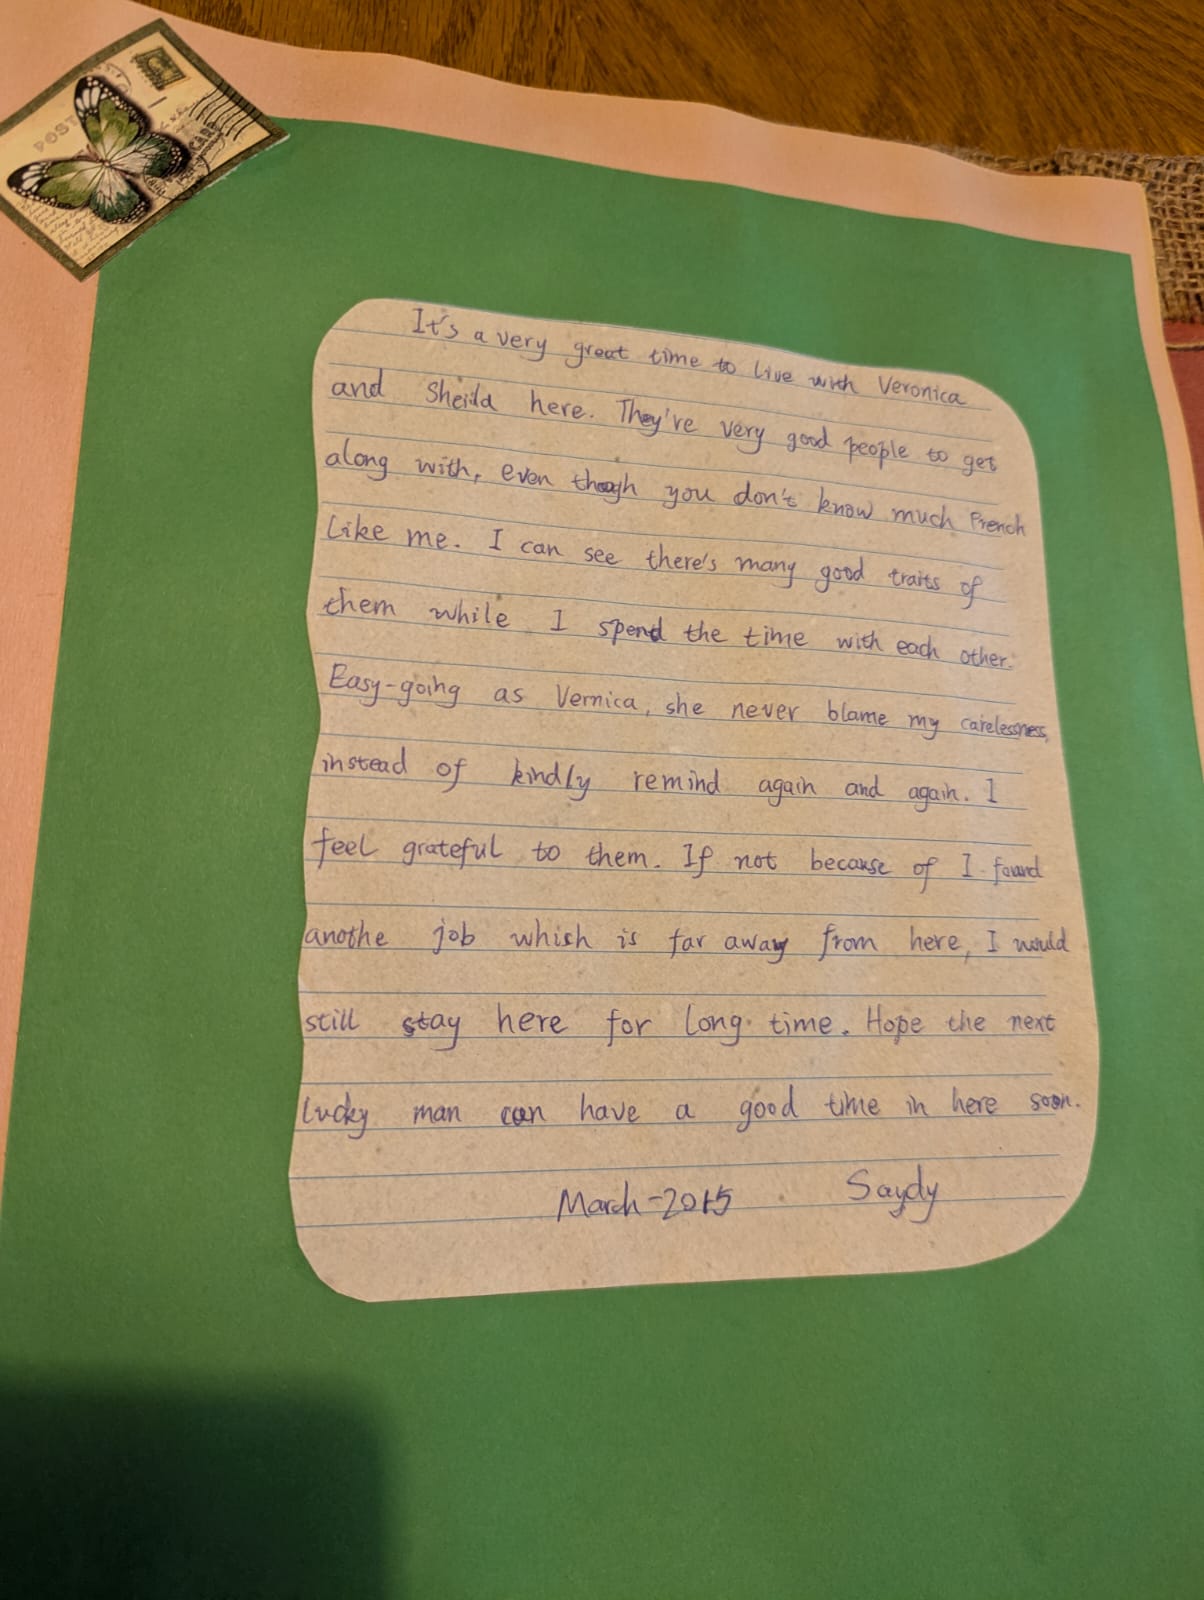 POST
It's a very great time to live with Veronica
and Sheila here. They're very good people to get
along with, even though you don't know much French
like me. I can see there's many good traits of
them while I spend the time with each other.
Easy-going as Vernica, she never blame my carelessness,
instead of kindly remind again and again. I
feel grateful to them. If not because of I found
anothe job whish is far away from here, I would
still stay here for long time. Hope the next
lucky man can have a good time in here soon.
March-2015 Saydy